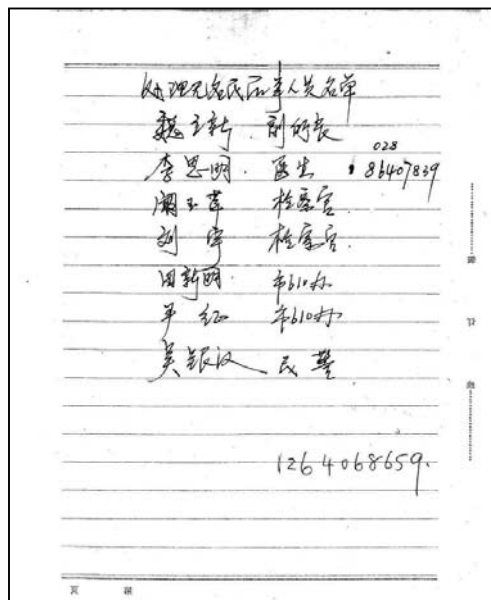 处理死民事人员名单
魏立新 副所长
028
李思明 医生 86407839
检察官
刘宇 检察官
田新明 市610办
平红 市610办
吴银汉 民警
1264068659.
页 第